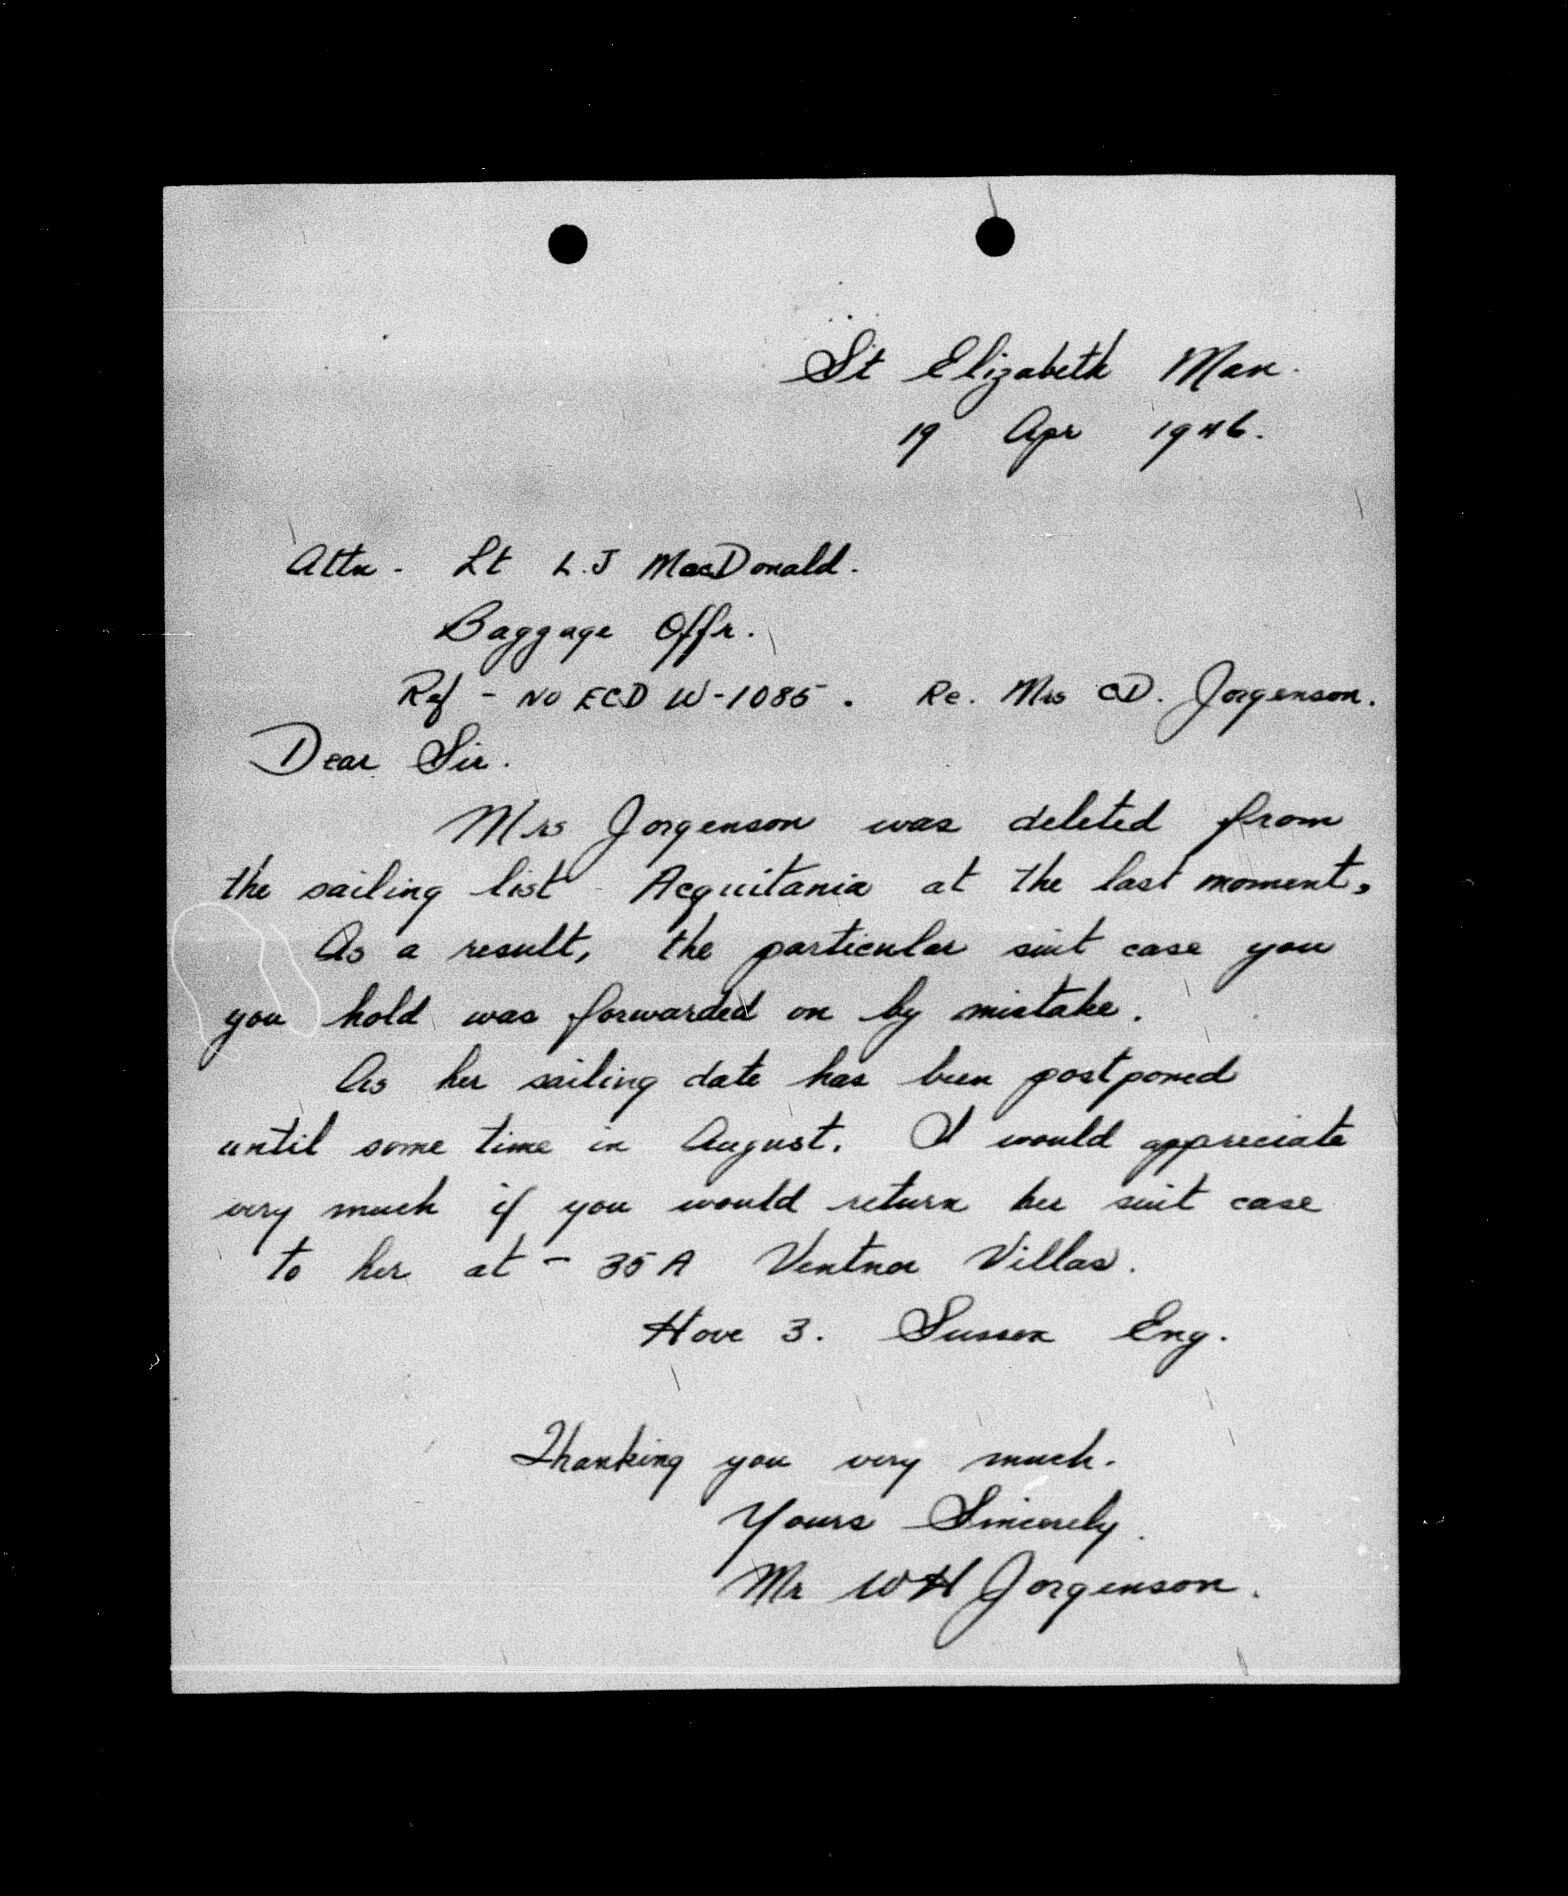 St Elizabeth Man.
19 Apr 1946.
Attn - Lt L.J MacDonald.
Baggage Offr.
Ref - No ECD W-1085. Re. Mrs CD. Jorgenson.
Dear Sir.
Mrs Jorgenson was deleted from
the sailing list Acquitania at the last moment.
As a result, the particular suit case you
you hold was forwarded on by mistake.
As her sailing date has been postponed
until some time in August. I would appreciate
very much if you would return her suit case
to her at - 35A Ventnor Villas.
Hove 3. Sussex Eng.
Thanking you very much.
Yours Sincerely.
Mr WH Jorgenson.